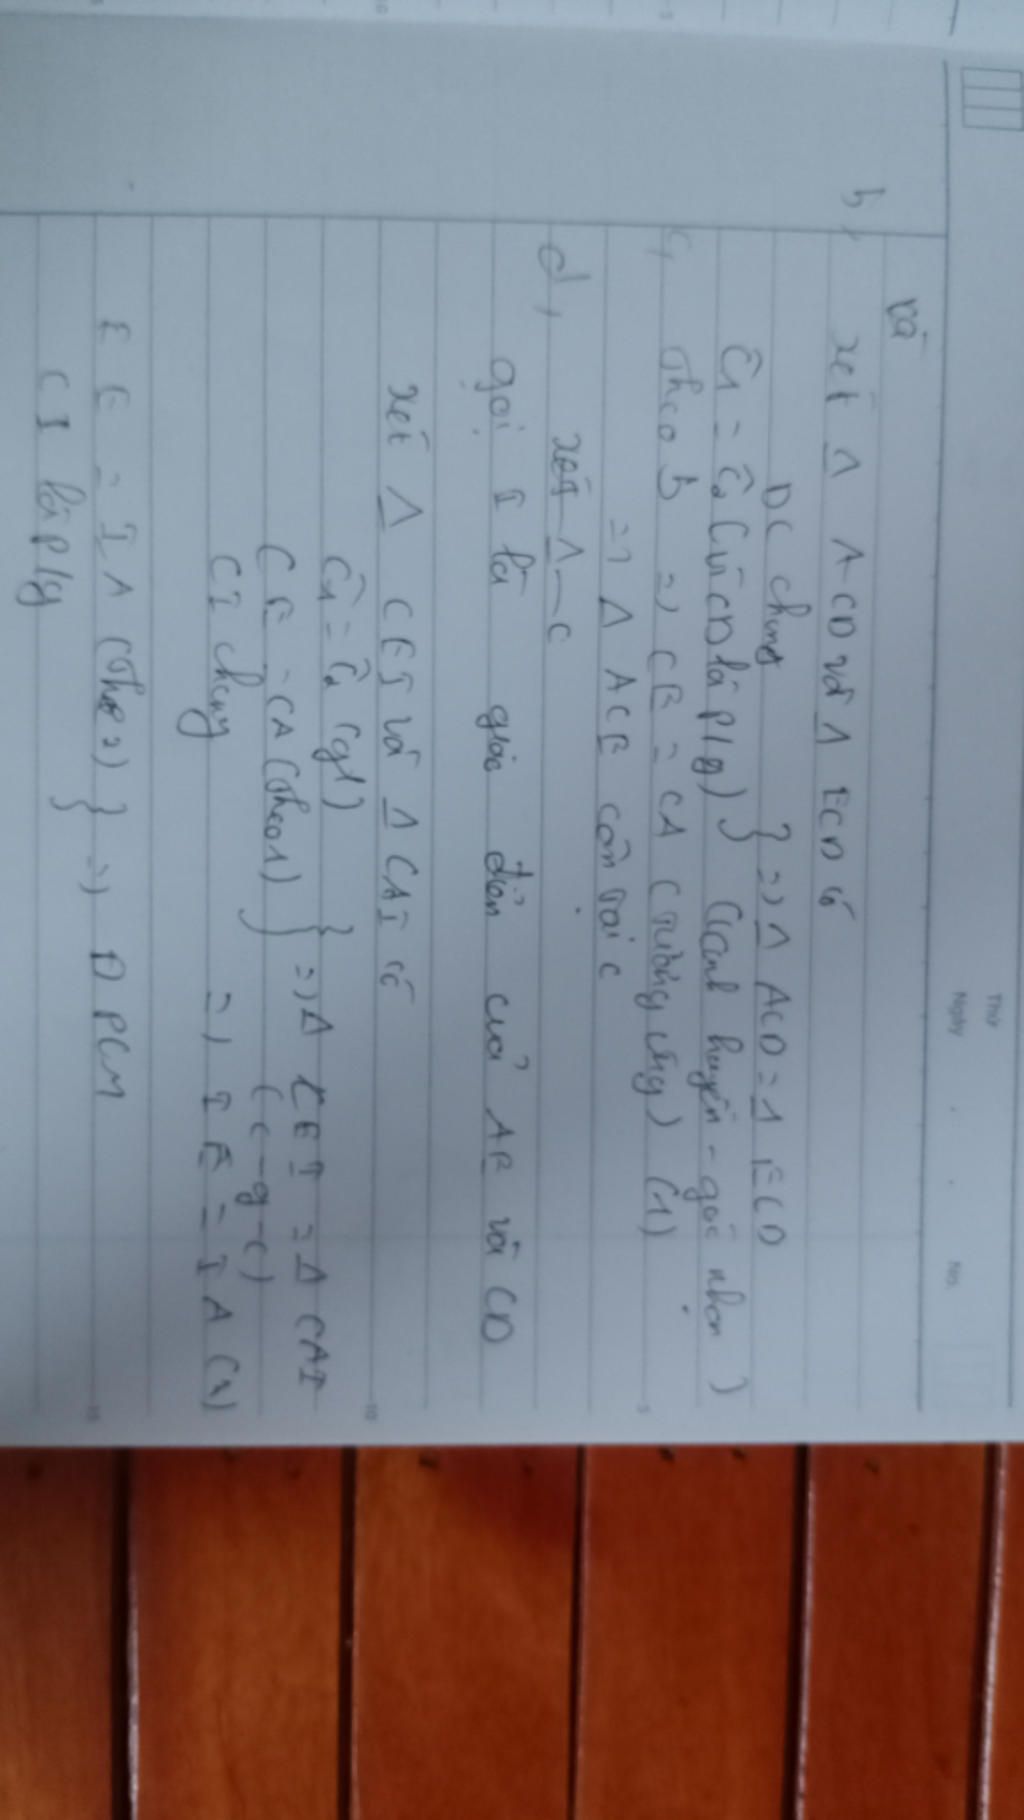 Thứ
Ngày . . No.
và
b, xét Δ ACD và Δ ECD có
DC chung } => Δ ACD = Δ ECD
Ĉ1 = Ĉ2 (vì CD là p/g) } (cạnh huyền - góc nhọn)
c, theo b => CE = CA (tương ứng) (1)
=> Δ ACE cân tại C
d, xét Δ C
gọi I là giao điểm của AE và CD
xét Δ CEI và Δ CAI có
Ĉ1 = Ĉ2 (gt) } => Δ CEI = Δ CAI
CE = CA (theo 1) } (c-g-c)
CI chung => IE = IA (2)
E E = IA (theo 2) } => DPCM
CI là p/g }
5
10
15